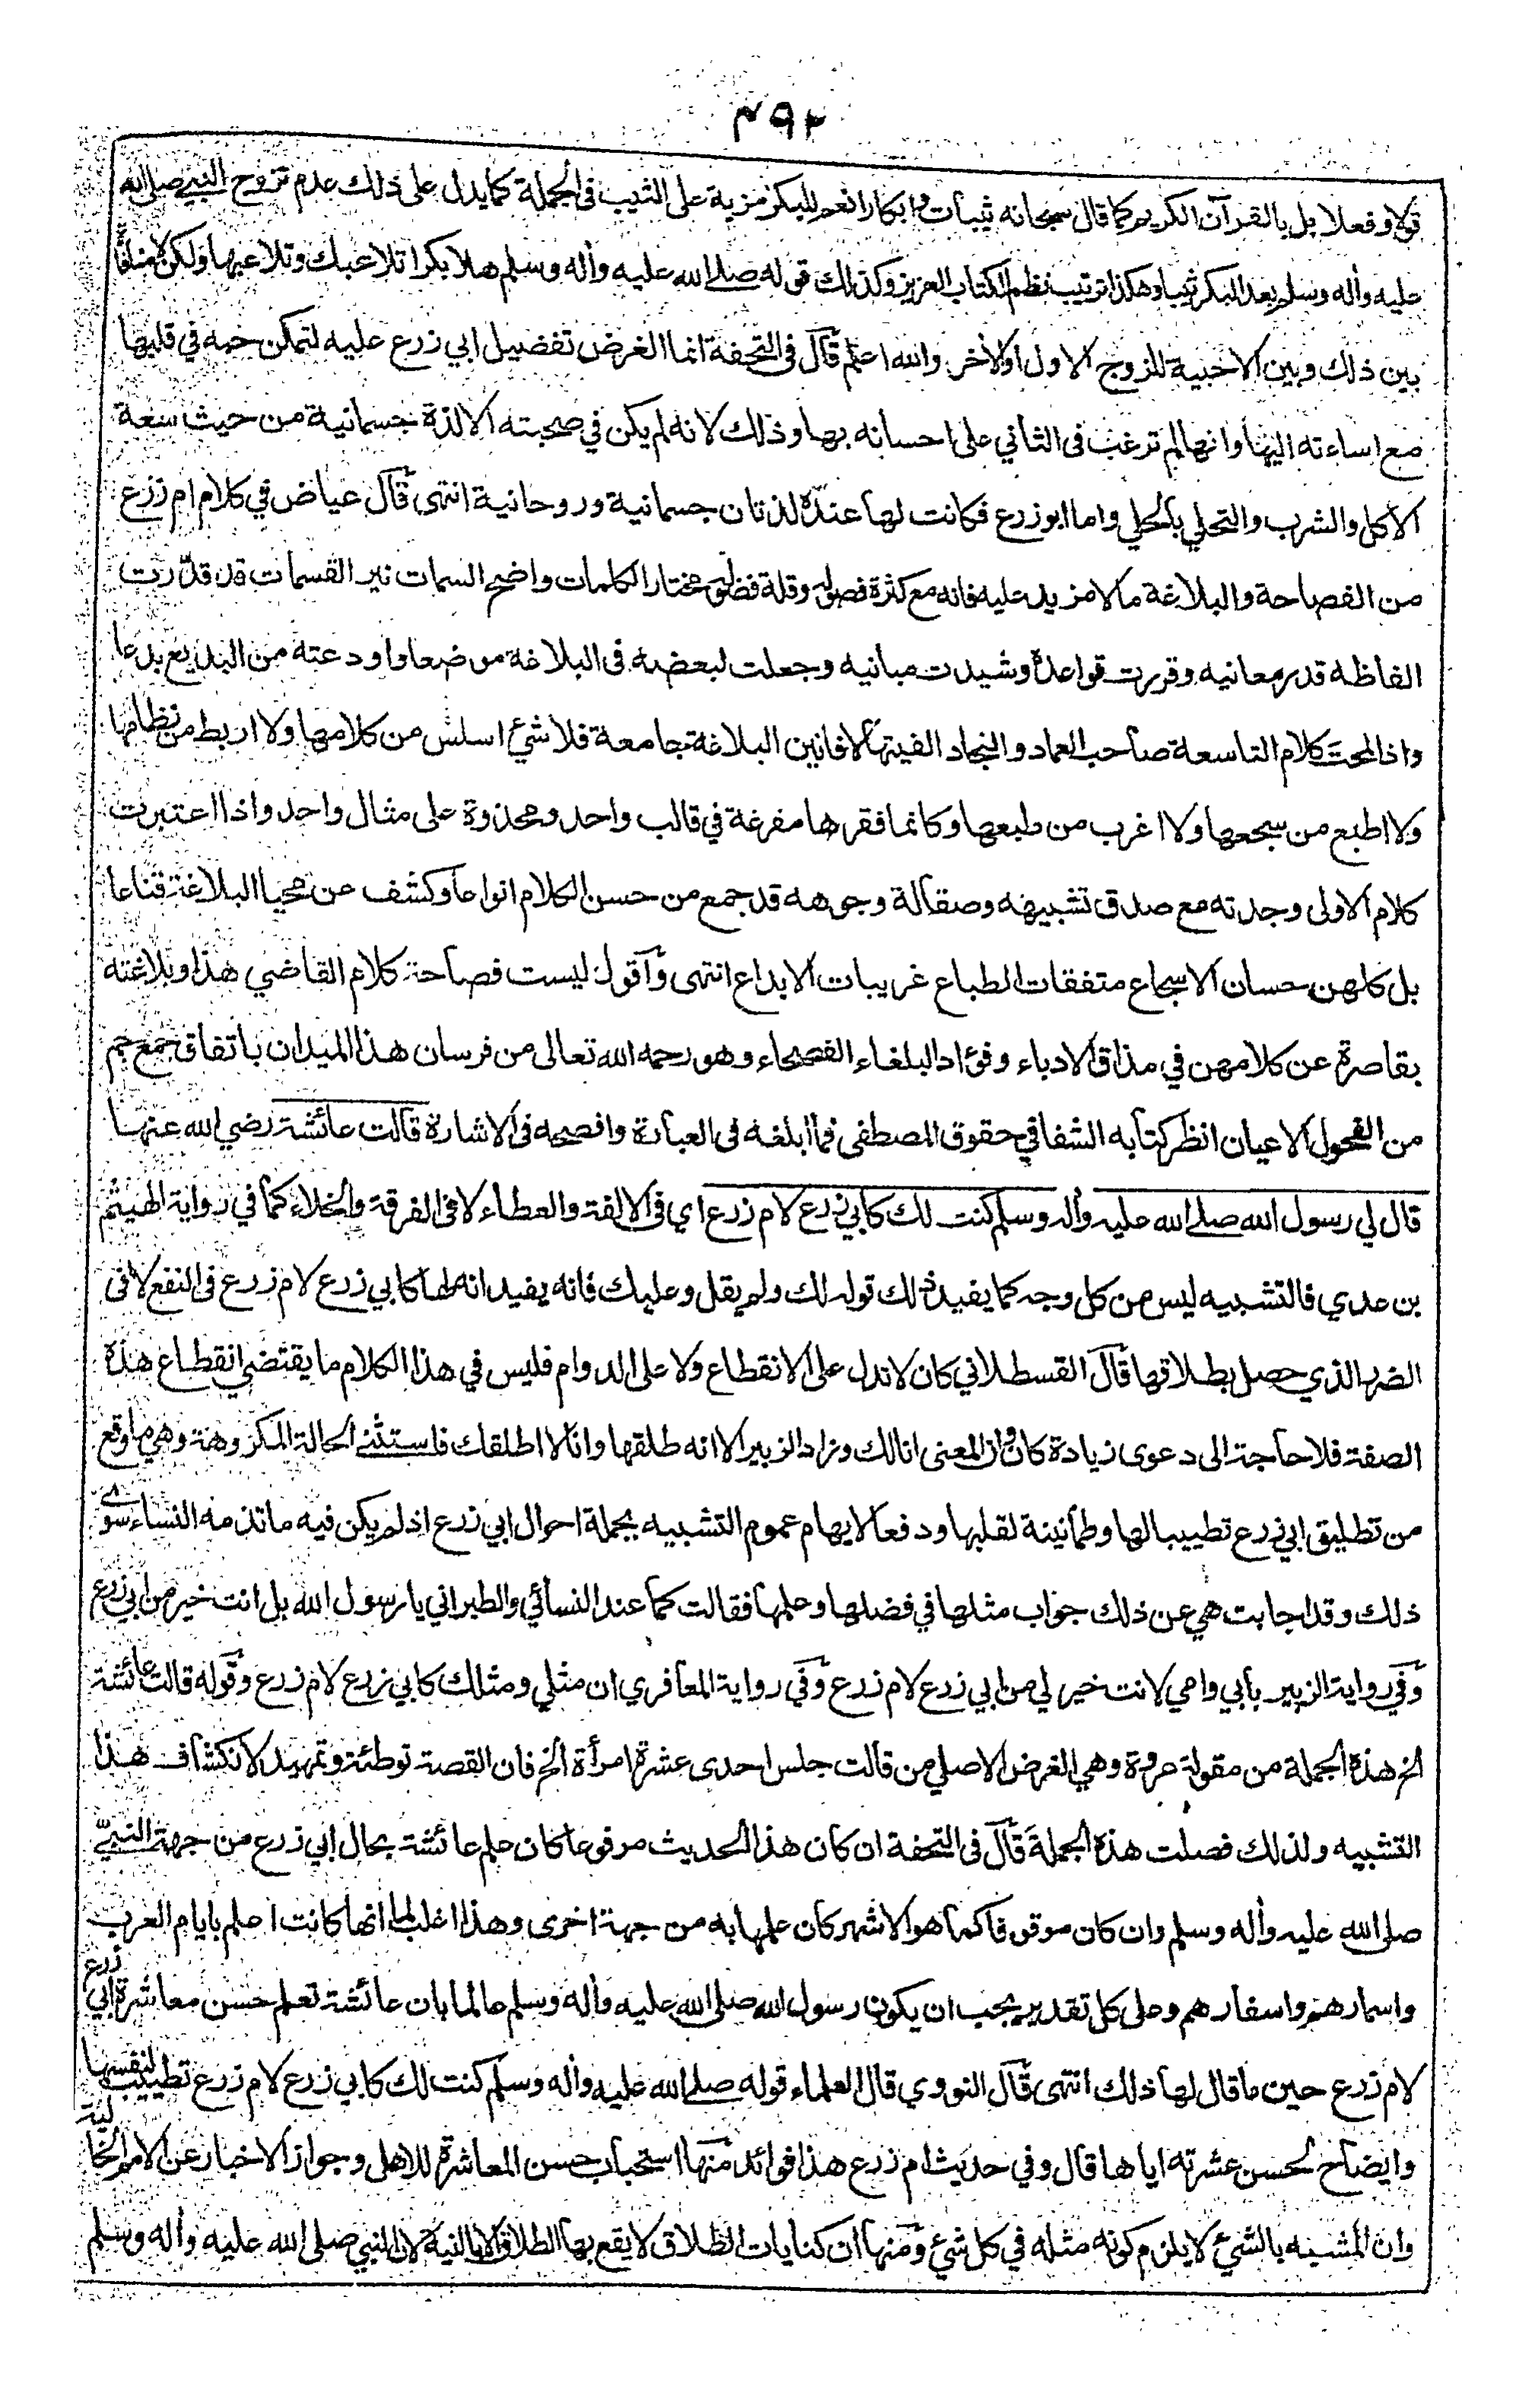 ٤٩٢
قولا وفعلا بل بالقرآن الكريم كما قال سبحانه ثيبات وابكارا نعم للبكر مزية على الثيب فى الجملة كما يدل على ذلك عدم تزوج النبي صلى الله
عليه وأله وسلم بعد البكر ثيبا وهكذا ترتيب نظم الكتاب العزيز وكذلك قوله صلى الله عليه وأله وسلم هلا بكرا تلاعبك وتلاعبها ولكن لا منافاة
بين ذلك وبين الاحبية للزوج الاول او الأخر والله اعلم قال فى التحفة انما الغرض تفضيل ابي زرع عليه لتمكن حبه في قلبها
مع اساءته اليها وانها لم ترغب فى الثاني على احسانه بها وذلك لانه لم يكن في صحبته الا لذة جسمانية من حيث سعة
الاكل والشرب والتحلي بالحلي واما ابو زرع فكانت لها عنده لذتان جسمانية وروحانية انتهى قال عياض في كلام ام زرع
من الفصاحة والبلاغة ما لا مزيد عليه فانه مع كثرة فصوله وقلة فضوله مختار الكلمات واضح السمات نير القسمات قد قدرت
الفاظه قدر معانيه وقررت قواعده وشيدت مبانيه وجعلت لبعضه فى البلاغة موضعا واودعته من البديع بدعا
واذا لمحت كلام التاسعة صاحب العماد والنجاد الفيتها لافانين البلاغة جامعة فلا شئ اسلس من كلامها ولا اربط من نظامها
ولا اطبع من سجعها ولا اغرب من طبعها وكانما فقرها مفرغة في قالب واحد ومحذوة على مثال واحد واذا اعتبرت
كلام الاولى وجدته مع صدق تشبيهه وصقالة وجوهه قد جمع من حسن الكلام انواعا وكشف عن محيا البلاغة قناعا
بل كلهن حسان الاسجاع متفقات الطباع غريبات الابداع انتهى وأقول ليست فصاحة كلام القاضي هذا وبلاغته
بقاصرة عن كلامهن في مذاق الادباء وفؤاد البلغاء الفصحاء وهو رحمه الله تعالى من فرسان هذا الميدان باتفاق جمع جم
من الفحول الاعيان انظر كتابه الشفا في حقوق المصطفى فما ابلغه فى العبارة وافصحه فى الاشارة قالت عائشة رضي الله عنها
قال لي رسول الله صلى الله عليه وأله وسلم كنت لك كابي زرع لام زرع اي فى الالفة والعطاء لا فى الفرقة والخلاء كما في رواية الهيثم
بن عدي فالتشبيه ليس من كل وجه كما يفيد ذلك قوله لك ولم يقل وعليك فانه يفيد انه لها كابي زرع لام زرع فى النفع لا فى
الضرر الذي حصل بطلاقها قال القسطلاني كان لا تدل على الانقطاع ولا على الدوام فليس في هذا الكلام ما يقتضي انقطاع هذه
الصفة فلا حاجة الى دعوى زيادة كان وان المعنى انا لك وزاد الزبير الا انه طلقها وانا لا اطلقك فاستثنى الحالة المكروهة وهي ما وقع
من تطليق ابي زرع تطييبا لها وطمأنينة لقلبها ودفعا لايهام عموم التشبيه بجملة احوال ابي زرع اذ لم يكن فيه ما تذمه النساء سوى
ذلك وقد اجابت هي عن ذلك جواب مثلها في فضلها وحلمها فقالت كما عند النسائي والطبراني يا رسول الله بل انت خير من ابي زرع
وفي رواية الزبير بأبي وامي لانت خير لي من ابي زرع لام زرع وفي رواية المعافري ان مثلي ومثلك كابي زرع لام زرع وقوله قالت عائشة
الخ هذه الجملة من مقولة عروة وهي الغرض الاصلي من قالت جلس احدى عشرة امرأة الخ فان القصة توطئة وتمهيد لانكشاف هذا
التشبيه ولذلك فصلت هذه الجملة قال فى التحفة ان كان هذا الحديث مرفوعا كان علم عائشة بحال ابي زرع من جهة النبي
صلى الله عليه وأله وسلم وان كان موقوفا كما هو الاشهر كان علمها به من جهة اخرى وهذا اغلب لما انها كانت اعلم بايام العرب
واسمارهم واسفارهم وعلى كل تقدير يجب ان يكون رسول الله صلى الله عليه وأله وسلم عالما بان عائشة تعلم حسن معاشرة ابي زرع
لام زرع حين ما قال لها ذلك انتهى قال النووي قال العلماء قوله صلى الله عليه وأله وسلم كنت لك كابي زرع لام زرع تطييب لنفسها
وايضاح لحسن عشرته اياها قال وفي حديث ام زرع هذا فوائد منها استحباب حسن المعاشرة للاهل وجواز الاخبار عن الامم الخالية
وان المشبه بالشئ لا يلزم كونه مثله في كل شئ ومنها ان كنايات الطلاق لا يقع بها الطلاق الا بالنية لان النبي صلى الله عليه وأله وسلم